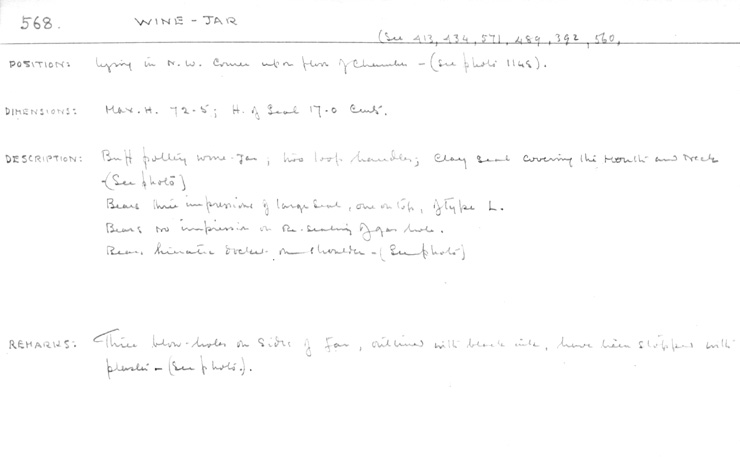 568. WINE-JAR
(See 413, 434, 571, 489, 392, 560,
POSITION: Lying in N.W. Corner upon floor of Chamber - (See photo 1148).
DIMENSIONS: Max. H. 72.5; H. of Seal 17.0 Cents.
DESCRIPTION: Buff pottery wine-Jar; two loop handles; Clay seal covering the Mouth and Neck
(See photo)
Bears three impressions of large Seal, one on top, of type L.
Bears no impression on Re-sealing of gas hole.
Bears hieratic docket on shoulder - (See photo)
REMARKS: Three blow-holes on Side of Jar, outlined with black ink, have been stopped with
plaster - (See photo.).